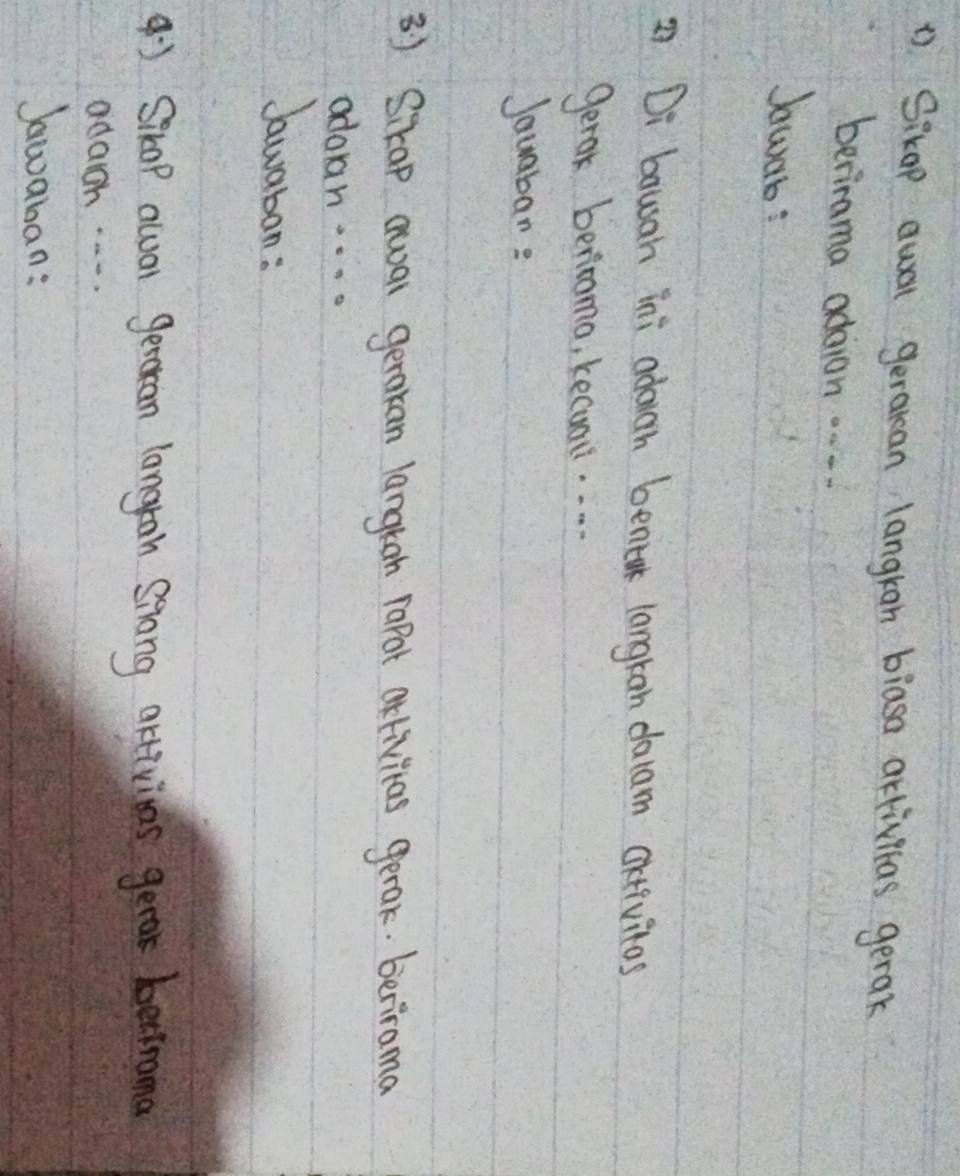 1) Sikap awal gerakan langkah biasa aktivitas gerak
berirama adalah ....
Jawab:
2) Di bawah ini adalah bentuk langkah dalam aktivitas
gerak berirama, kecuali ....
Jawaban:
3.) Sikap awal gerakan langkah rapat aktivitas gerak. berirama
adalah ....
Jawaban:
4.) Sikap awal gerakan langkah silang aktivitas gerak berirama
adalah ....
Jawaban: